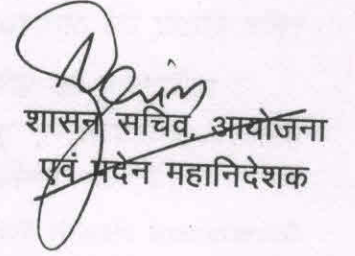 शासन सचिव, आयोजना
एवं पदेन महानिदेशक